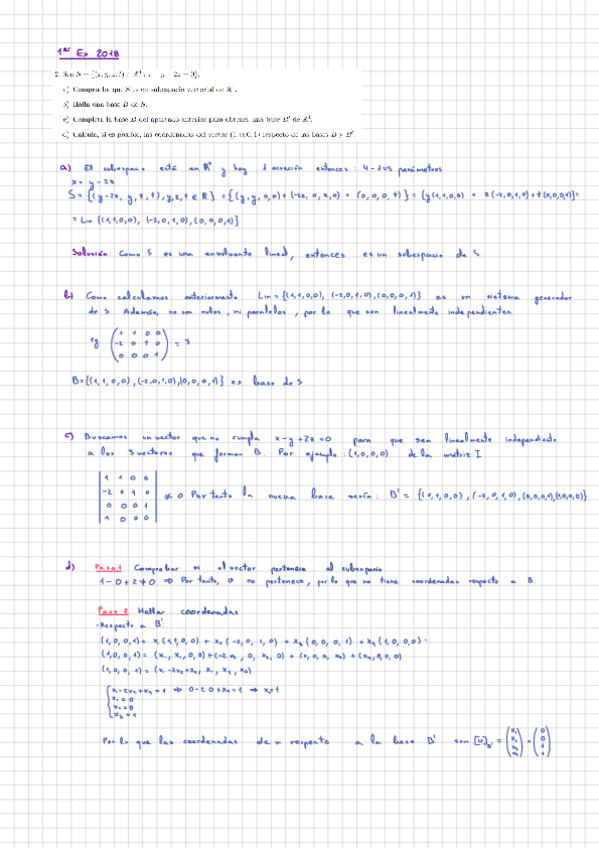 1er Ex 2018
2. Sea S = {(x, y, z, t) ∈ R⁴ : x − y + 2z = 0}.
a) Comprueba que S es un subespacio vectorial de R⁴.
b) Halla una base B de S.
c) Completa la base B del apartado anterior para obtener una base B' de R⁴.
d) Calcula, si es posible, las coordenadas del vector (1, 0, 0, 1) respecto de las bases B y B'.
a) El subespacio está en R⁴ y hay 1 ecuación entonces: 4-1=3 parámetros
x = y - 2z
S = {(y-2z, y, z, t), y,z,t ∈ R} = {(y,y,0,0) + (-2z, 0, z, 0) + (0,0,0,t)} = {y(1,1,0,0) + z(-2,0,1,0) + t(0,0,0,1)} =
= Lin {(1,1,0,0), (-2,0,1,0), (0,0,0,1)}
Solución: Como S es una envolvente lineal, entonces es un subespacio de S.
b) Como calculamos anteriormente Lin = {(1,1,0,0), (-2,0,1,0), (0,0,0,1)} es un sistema generador
de S. Además, no son nulos, ni paralelos, por lo que son linealmente independientes
1 1 0 0
rg -2 0 1 0 = 3
0 0 0 1
B = {(1,1,0,0), (-2,0,1,0), (0,0,0,1)} es base de S
c) Buscamos un vector que no cumpla x-y+2z=0 para que sea linealmente independiente
a los 3 vectores que forman B. Por ejemplo (1,0,0,0) de la matriz I
1 1 0 0
-2 0 1 0 ≠ 0 Por tanto la nueva base sería: B' = {(1,1,0,0), (-2,0,1,0), (0,0,0,1), (1,0,0,0)}
0 0 0 1
1 0 0 0
d) Paso 1 Comprobar si el vector pertenece al subespacio
1-0+2 ≠ 0 ⇒ Por tanto, no pertenece, por lo que no tiene coordenadas respecto a B.
Paso 2 Hallar coordenadas
-Respecto a B'
(1,0,0,1) = x₁(1,1,0,0) + x₂(-2,0,1,0) + x₃(0,0,0,1) + x₄(1,0,0,0)
(1,0,0,1) = (x₁, x₁, 0,0) + (-2x₂, 0, x₂, 0) + (0,0,0,x₃) + (x₄,0,0,0)
(1,0,0,1) = (x₁-2x₂+x₄, x₁, x₂, x₃)
x₁-2x₂+x₄=1 ⇒ 0-2·0+x₄=1 ⇒ x₄=1
x₁=0
x₂=0
x₃=1
Por lo que las coordenadas de u respecto a la base B' son [u]B' = (x₁ x₂ x₃ x₄) = (0 0 1 1)